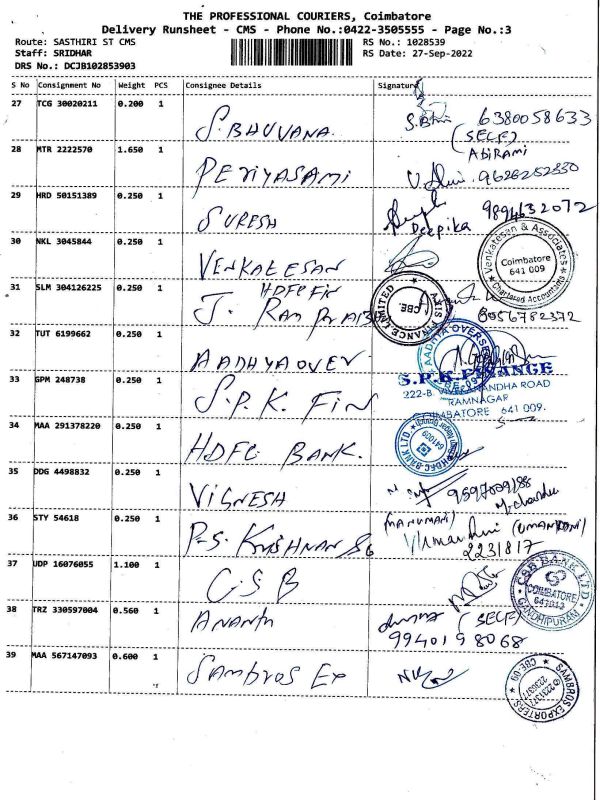 THE PROFESSIONAL COURIERS, Coimbatore
Delivery Runsheet - CMS - Phone No.:0422-3505555 - Page No.:3
Route: SASTHIRI ST CMS
RS No.: 1028539
Staff: SRIDHAR
RS Date: 27-Sep-2022
DRS No.: DCJB102853903
S No Consignment No Weight PCS Consignee Details Signature
27 TCG 30020211 0.200 1 S.BHUVANA 6380058633
(SELF)
28 MTR 2222570 1.650 1 PERIYASAMI ABIRAMI
29 HRD 50151389 0.250 1 SURESH Deepika 9894632072
30 NKL 3045844 0.250 1 VENKATESAN
Venkatesan & Associates
Coimbatore
641 009
Chartered Accountants
HDFC FIN
31 SLM 304126225 0.250 1 J.
AXIS FINANCE LIMITED
CBE.
8056782372
32 TUT 6199662 0.250 1 AADHYAOVER
AADHYA OVERSE
33 GPM 248738 0.250 1 S.P.K. FIN
S.P.K. FINANCE
222-B, ROAD
RAMNAGAR
COIMBATORE 641 009.
34 MAA 291378220 0.250 1 HDFC BANK.
HDFC BANK LTD.
641009
35 DDG 4498832 0.250 1 VIGNESH
36 STY 54618 0.250 1 P-S. KRISHNAN
2231817
37 UDP 16076055 1.100 1 CSB
CSB BANK LTD
COIMBATORE
641012
GANDHIPURAM
38 TRZ 330597004 0.560 1 ANANTH (SELF)
9940198068
39 MAA 567147093 0.600 1 SAMBROS EX
SAMBROS EXPORTERS
CBE